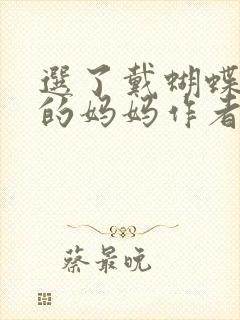 選了戴蝴蝶
的妈妈作者
蔡最晚